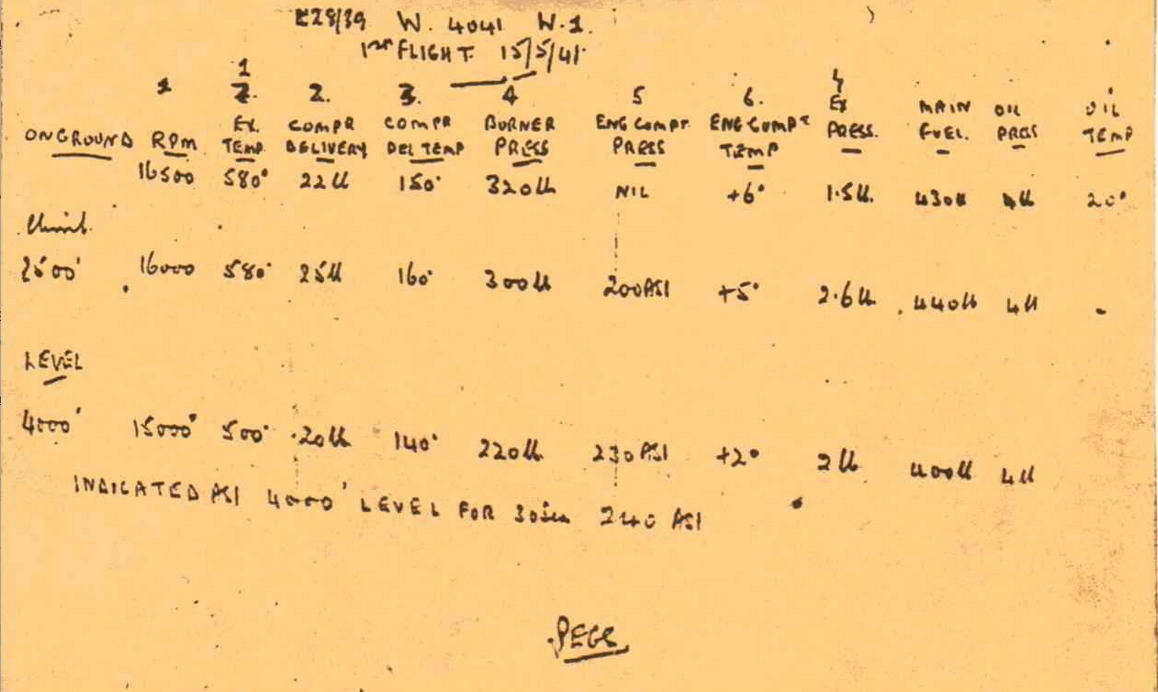 E28/39 W. 4041 W.1.
1ST FLIGHT 15/5/41
1 1 2. 3. 4 5 6. 4
ON GROUND RPM EX. TEMP COMPR DELIVERY COMPR DEL TEMP BURNER PRESS ENG COMPT. PRESS ENG COMPT TEMP EX PRESS. MAIN FUEL. OIL PRESS OIL TEMP
16500 580° 22lb 150° 320lb NIL +6° 1.5lb. 430lb 4lb 20°
Climb.
2500' 16000 580° 25lb 160° 300lb 200ASI +5° 2.6lb 440lb 4lb -
LEVEL
4000' 15000 500° 20lb 140° 220lb 230ASI +2° 2lb 400lb 4lb
INDICATED ASI 4000' LEVEL FOR 30sec 240 ASI
PEGS